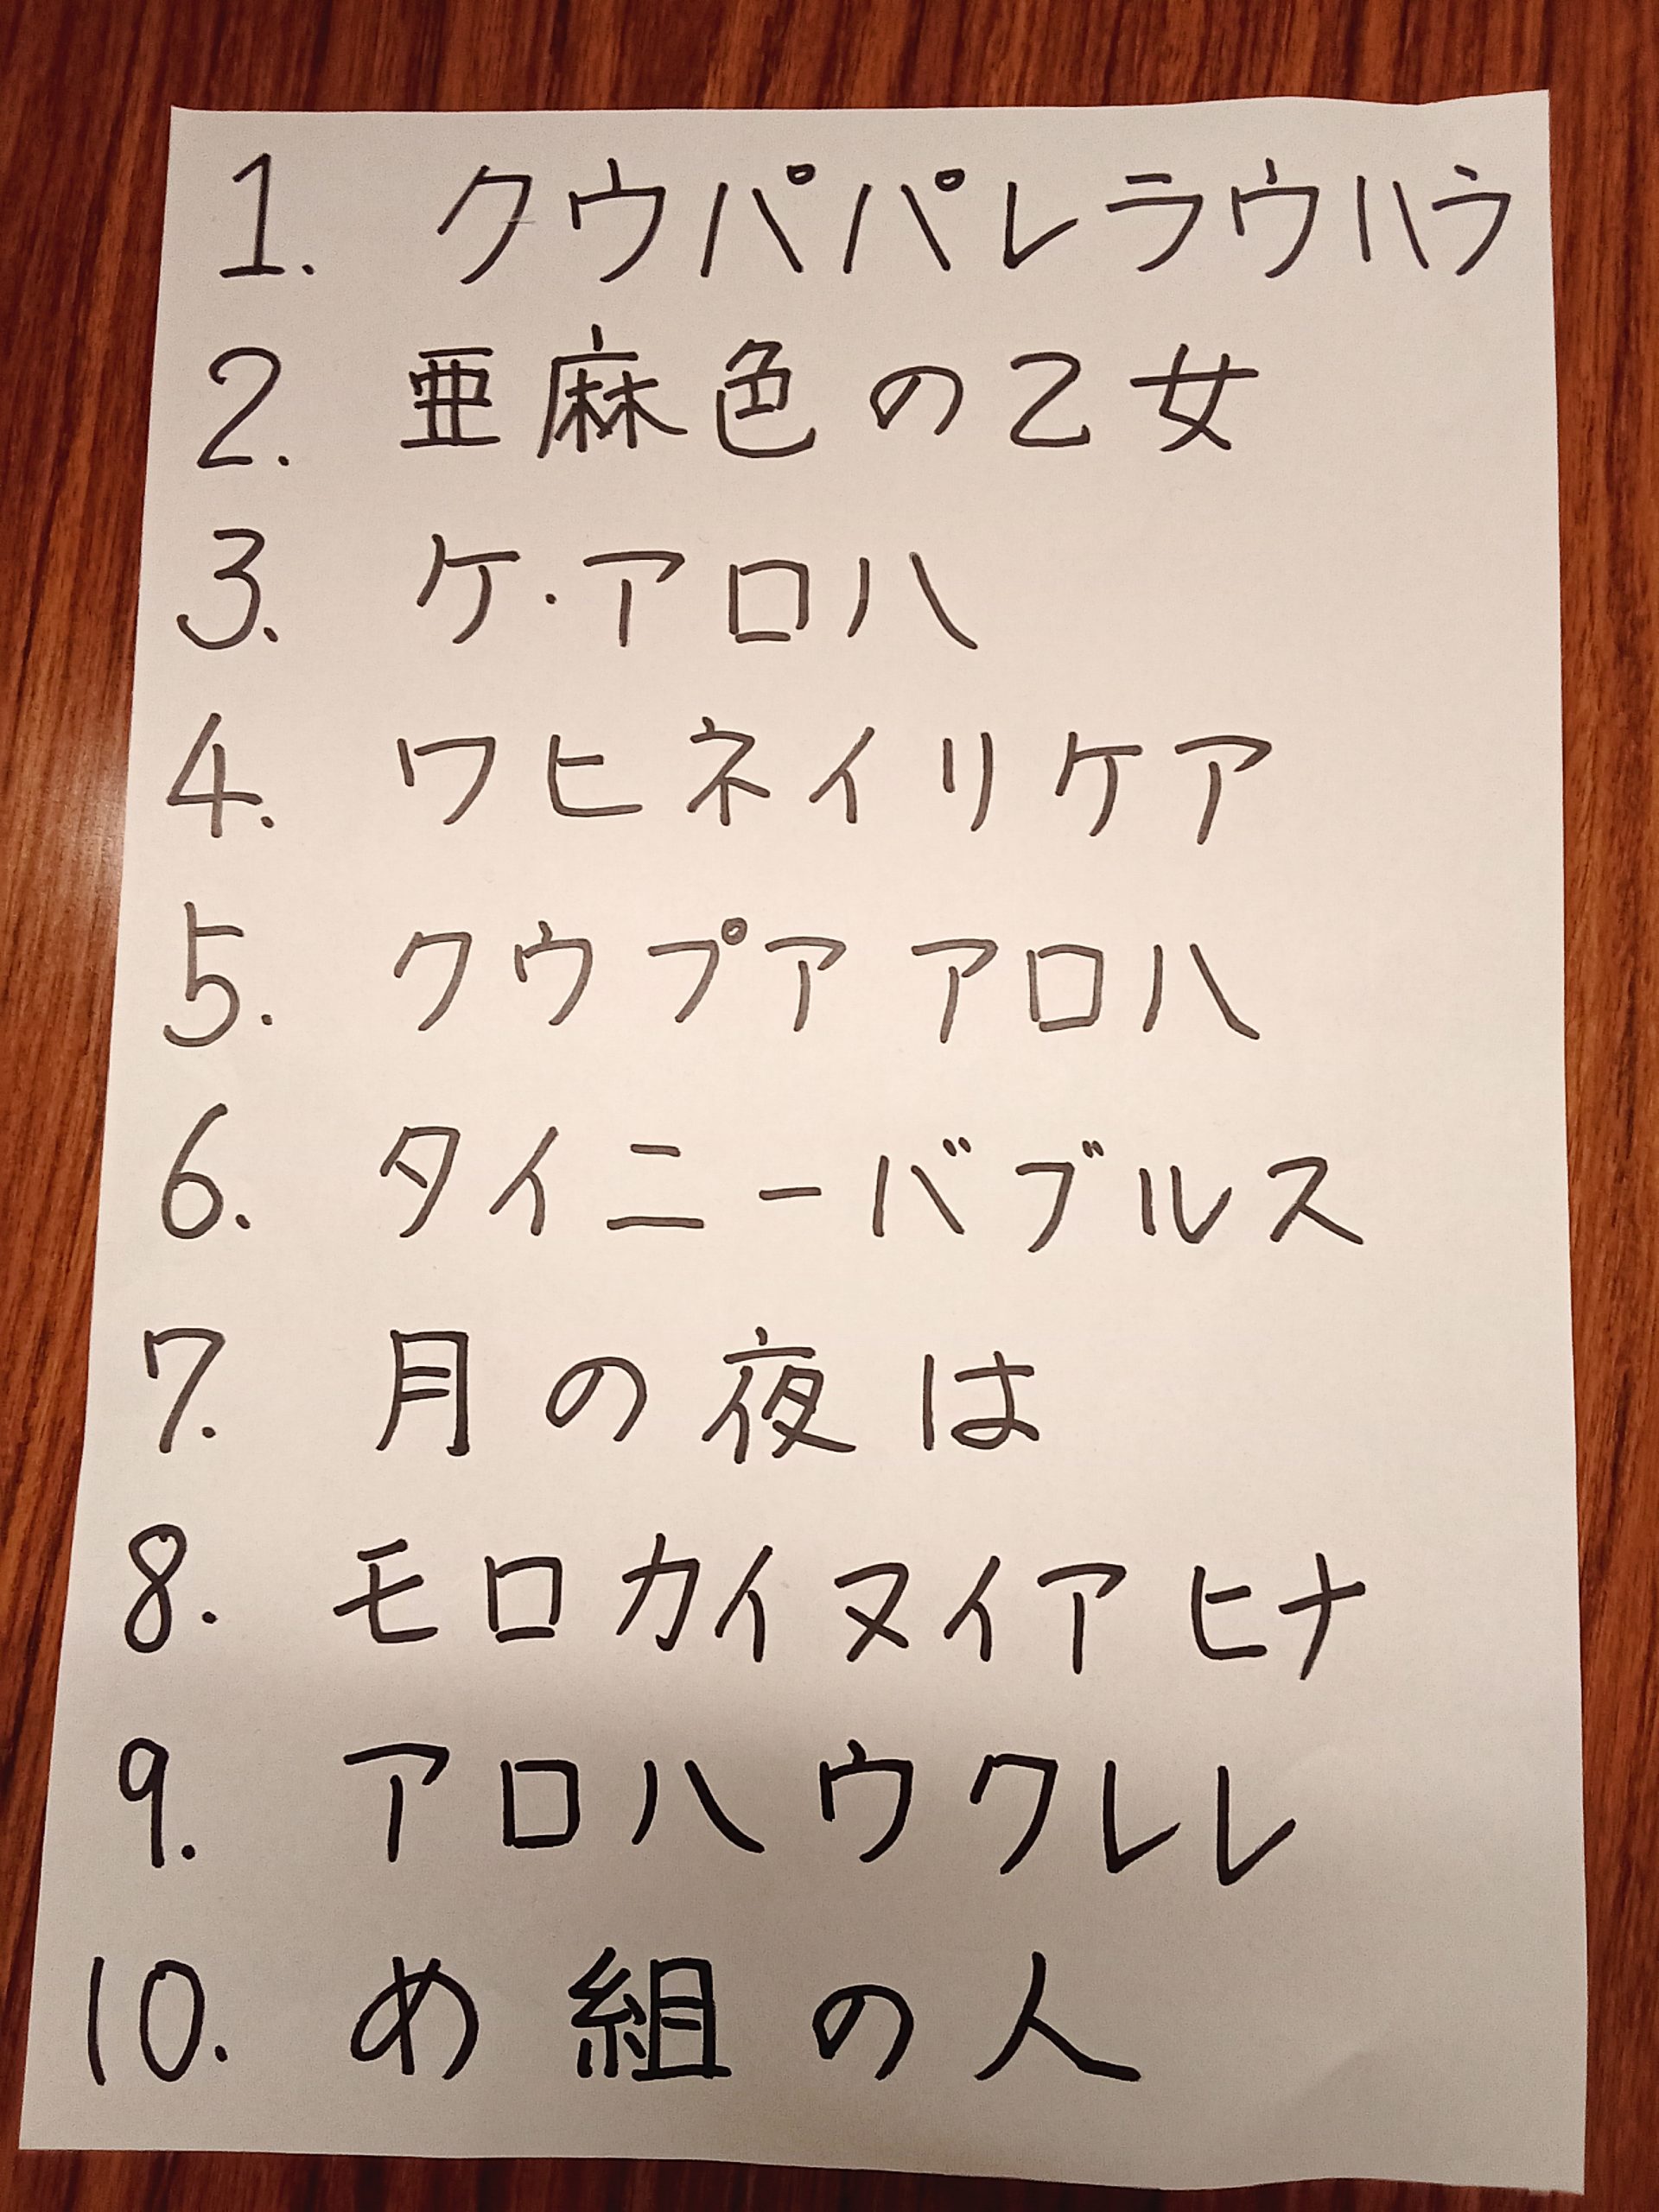 1. クウパパレラウハラ
2. 亜麻色の乙女
3. ケ・アロハ
4. ワヒネイリケア
5. クウプア アロハ
6. タイニーバブルス
7. 月の夜は
8. モロカイヌイアヒナ
9. アロハウクレレ
10. め組の人